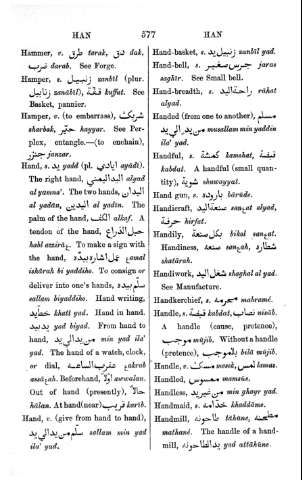 HAN 577 HAN
Hammer, v. طرق tarak, دق dak,
ضرب darab. See Forge.
Hamper, s. زنبيل zanbîl (plur.
زنابيل zanâbîl), قفّة kuffat. See
Basket, pannier.
Hamper, v. (to embarrass), شربك
sharbak, حيّر kayyar. See Per-
plex, entangle.—(to enchain),
جنزر janzar.
Hand, s. يد yadd (pl. ايادي ayâdî).
The right hand, اليد اليمنى alyad
alyamna'. The two hands, اليدان
al yadân, اليدين al yadîn. The
palm of the hand, الكف alkaf. A
tendon of the hand, حبل الذراع
habl azzirâع. To make a sign with
the hand, عمل اشارة بيدّه عamal
ishârah bi yaddihe. To consign or
deliver into one's hands, سلّم بيدّه
sallam biyaddihe. Hand writing,
خط يد khatt yad. Hand in hand,
يد بيد yad biyad. From hand to
hand, من يد الى يد min yad ila'
yad. The hand of a watch, clock,
or dial, عقرب الساعة عakrab
assâعah. Beforehand, اولاً awwalan.
Out of hand (presently), حالاً
hâlan. At hand (near) قريب karîb.
Hand, v. (give from hand to hand),
سلّم من يد الى يد sallam min yad
ila' yad.
Hand-basket, s. زنبيل يد zanbîl yad.
Hand-bell, s. جرس صغير jaras
saghîr. See Small bell.
Hand-breadth, s. راحة اليد râhat
alyad.
Handed (from one to another), مسلّم
من يد الى يد musallam min yaddin
ila' yad.
Handful, s. كمشة kamshat, قبضة
kabdat. A handful (small quan-
tity), شوية shuwayyat.
Hand gun, s. باروده bârûde.
Handicraft, s. صنعة اليد sanعat alyad,
حرفة hirfat.
Handily, بكل صنعة bikul sanعat.
Handiness, صنعة sanعah, شطارة
shatârah.
Handiwork, شغل اليد shoghal al yad.
See Manufacture.
Handkerchief, s. محرمه mahramé.
Handle, s. قبضة kabdat, نصاب nisâb.
A handle (cause, pretence),
موجب mûjib. Without a handle
(pretence), بلا موجب bilâ mûjib.
Handle, v. مسك masak, لمس lamas.
Handled, ملموس mamsûs.
Handless, من غير يد min ghayr yad.
Handmaid, s. خدّامه khaddâme.
Handmill, s. طاحونه tâhûne, مطحنه
mathané. The handle of a hand-
mill, يد الطاحونه yad attâhûne.